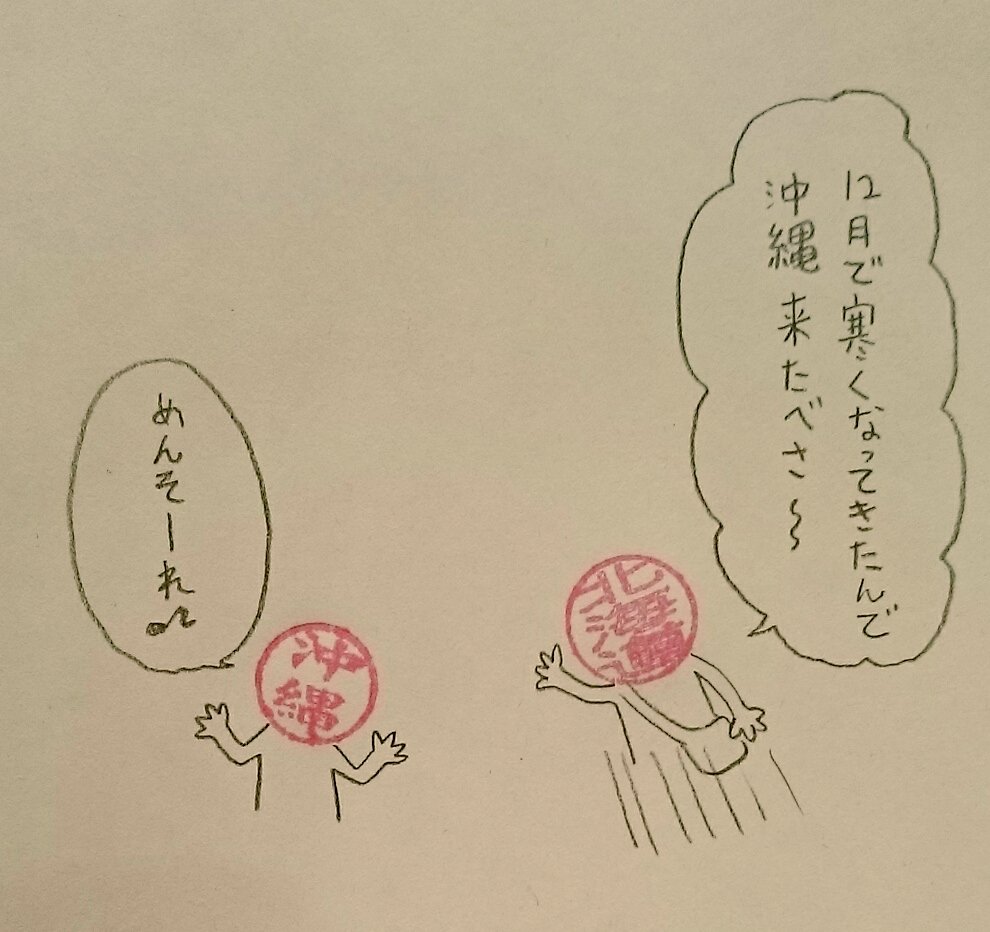 12月で寒くなってきたんで
沖縄 来たべさ〜
北海道
めんそーれ♪
沖縄